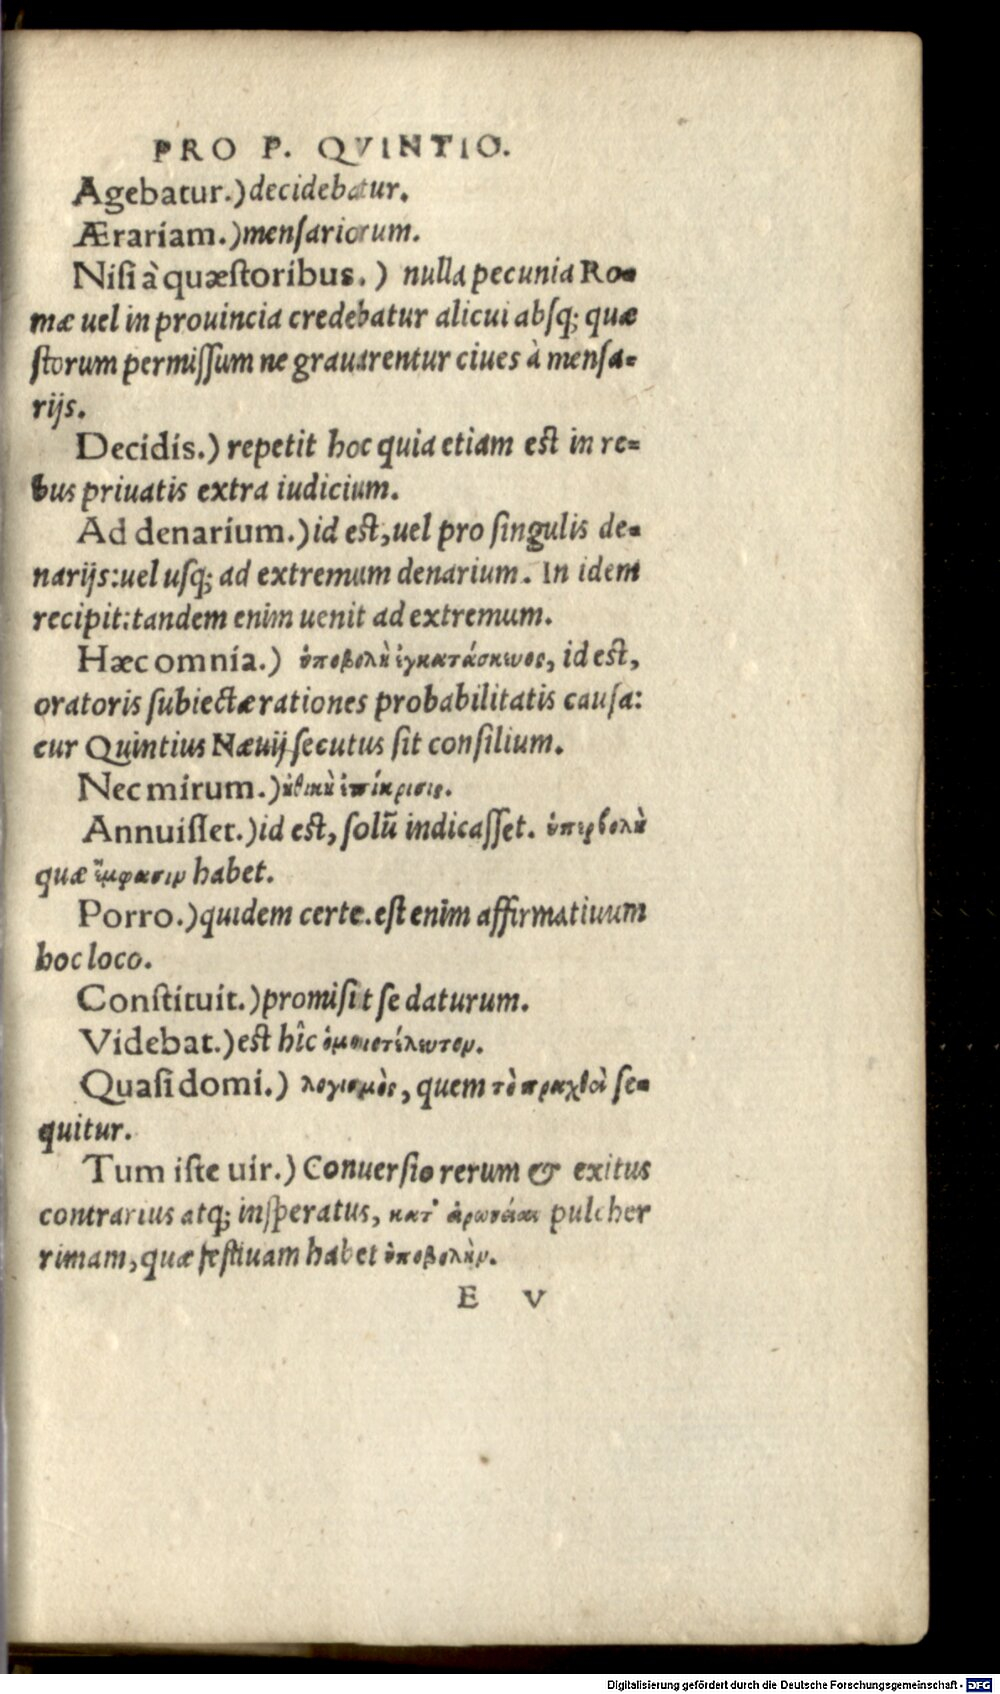 PRO P. QVINTIO.
Agebatur.) decidebatur.
Ærariam.) mensariorum.
Nisi à quæstoribus.) nulla pecunia Ro-
mæ uel in prouincia credebatur alicui absq; quæ
storum permissum ne grauarentur ciues à mensa-
rijs.
Decidis.) repetit hoc quia etiam est in re-
bus priuatis extra iudicium.
Ad denarium.) id est, uel pro singulis de-
narijs: uel usq; ad extremum denarium. In idem
recipit: tandem enim uenit ad extremum.
Hæc omnia.) ὑποβολὴ ἐγκατάσκευος, id est,
oratoris subiectæ rationes probabilitatis causa:
cur Quintius Næuij secutus sit consilium.
Nec mirum.) ἠθικὴ ἐπίκρισις.
Annuisset.) id est, solũ indicasset. ὑπερβολὴ
quæ ἔμφασιν habet.
Porro.) quidem certe. est enim affirmatiuum
hoc loco.
Constituit.) promisit se daturum.
Videbat.) est hîc ὁμοιοτέλευτον.
Quasi domi.) λογισμὸς, quem τὸ πραχθὲν se-
quitur.
Tum iste uir.) Conuersio rerum & exitus
contrarius atq; insperatus, κατ' pulcher
rimam, quæ festiuam habet ὑποβολὴν.
E V
Digitalisierung gefördert durch die Deutsche Forschungsgemeinschaft - DFG